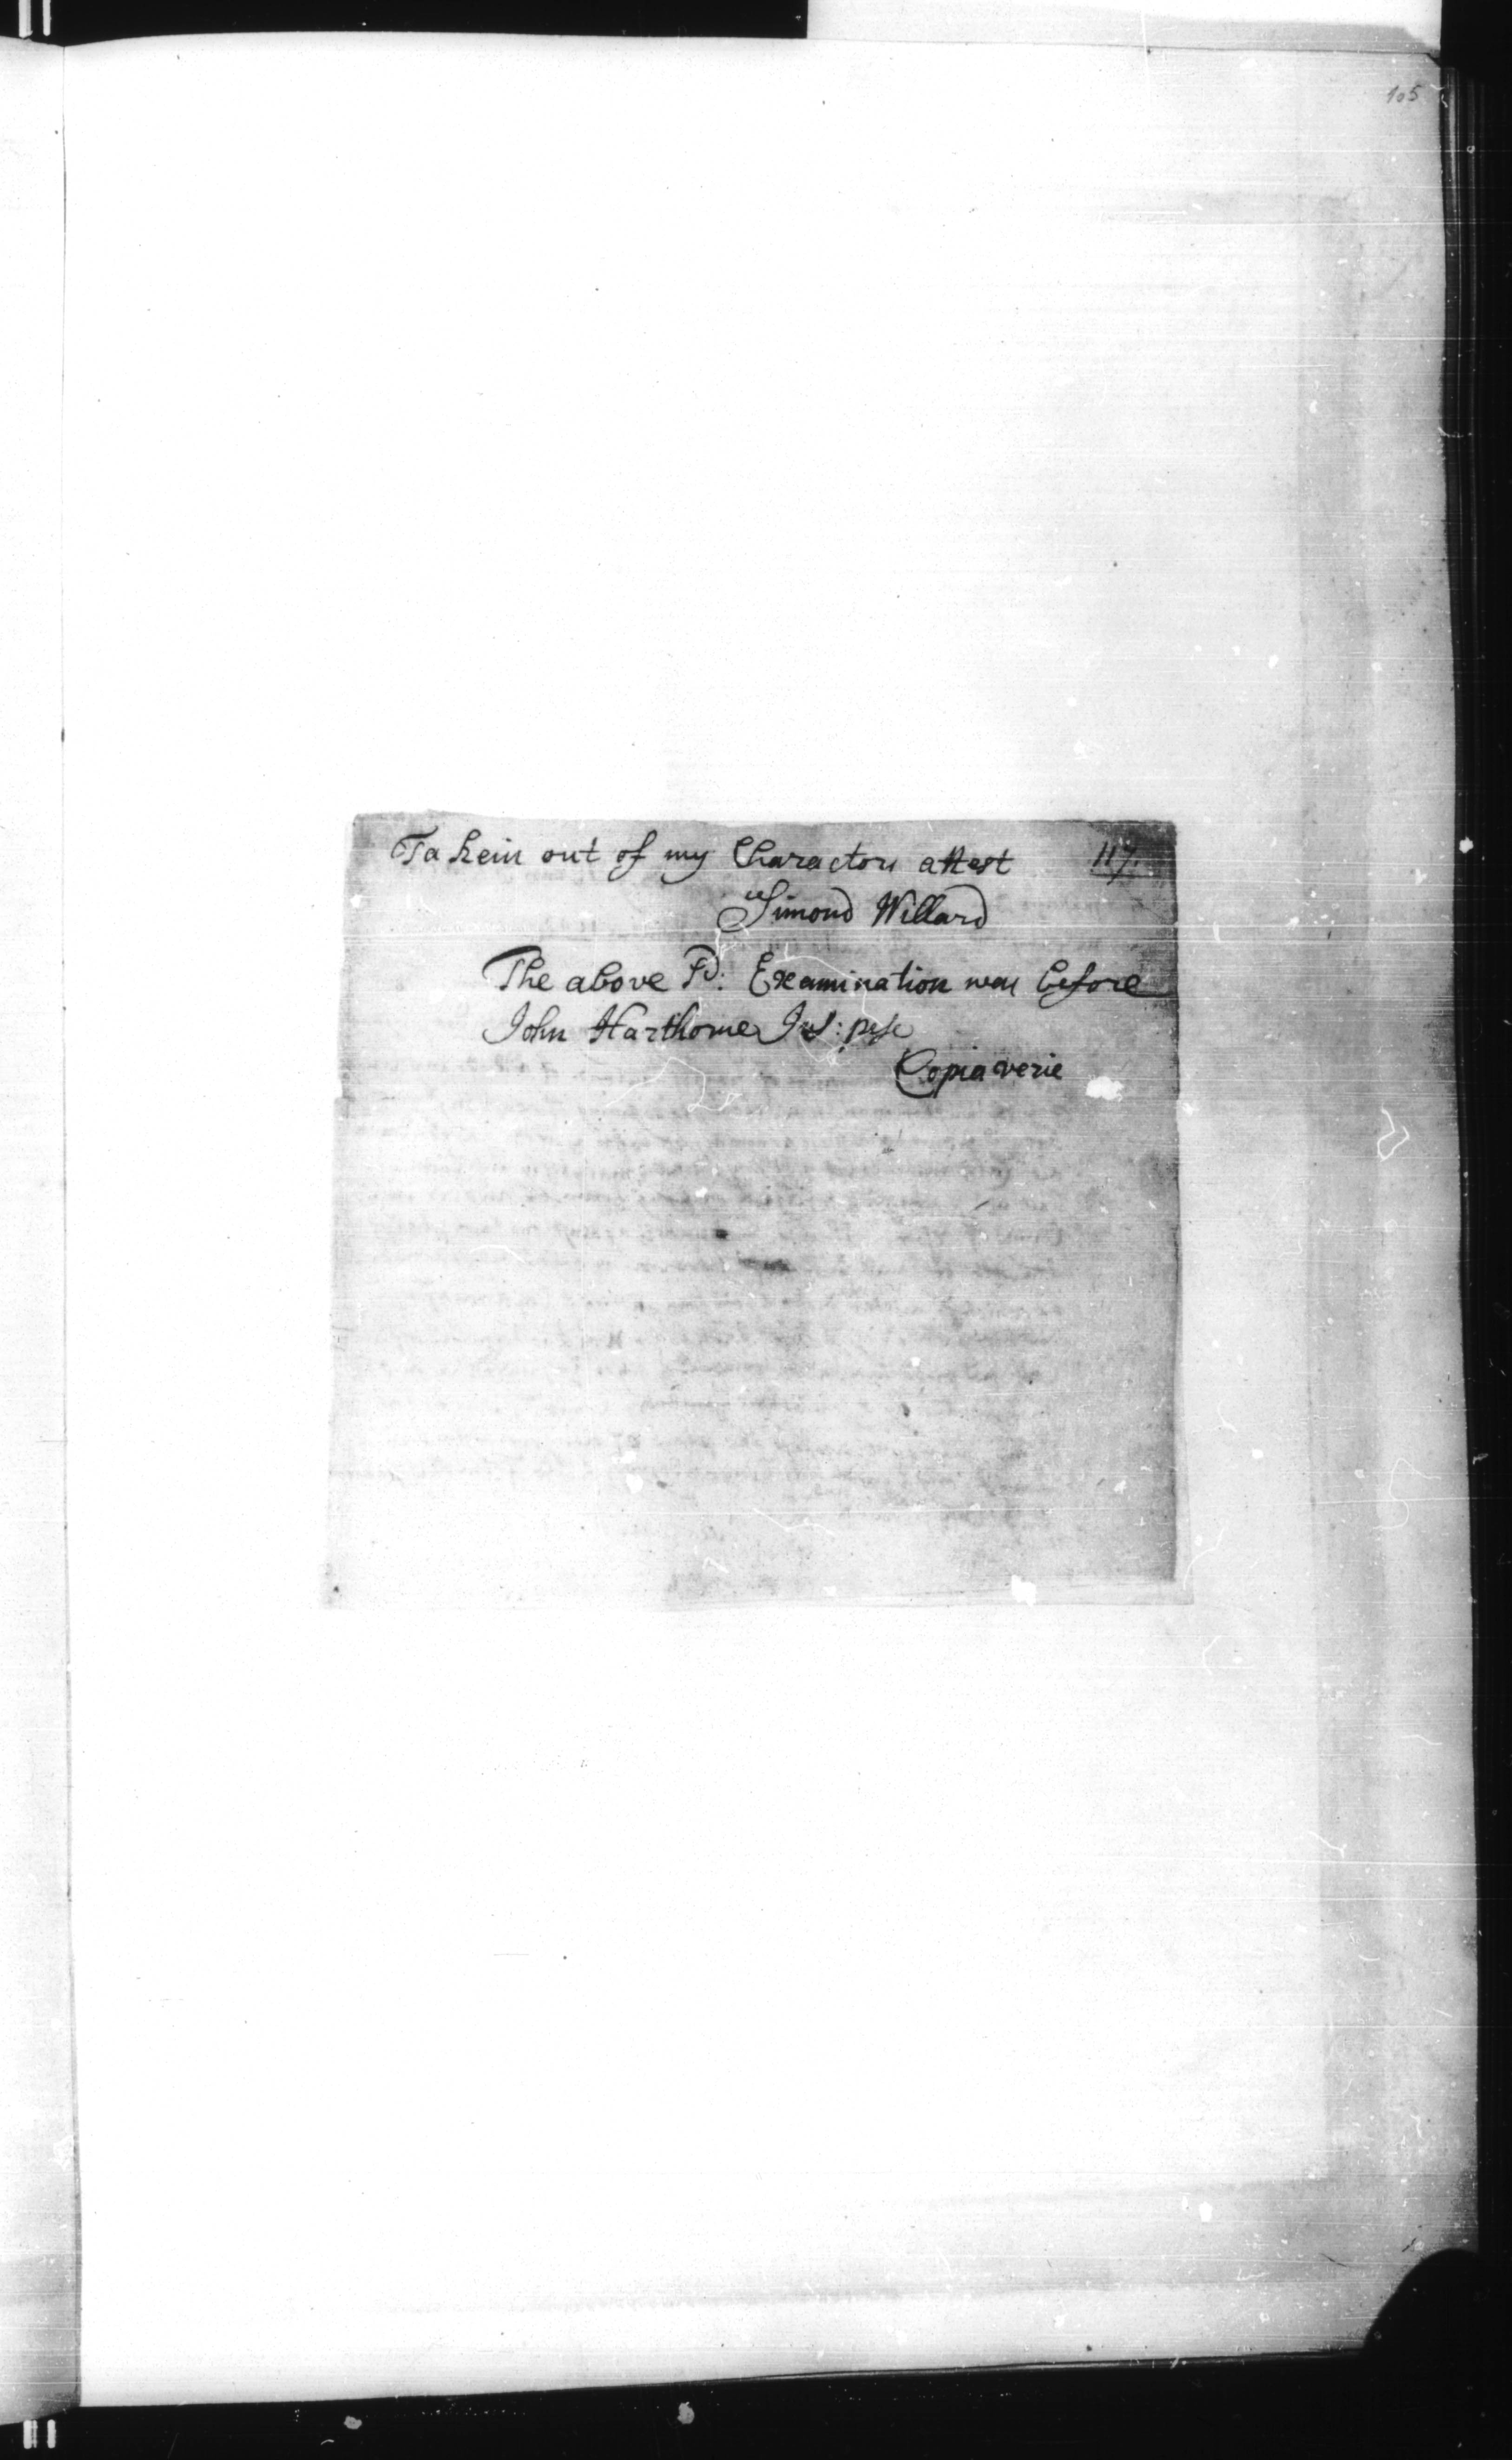 105
Takein out of my Charactors attest 117.
Simond Willard
The above sd: Examination was before
John Harthorne Jus: pese
Copia verie